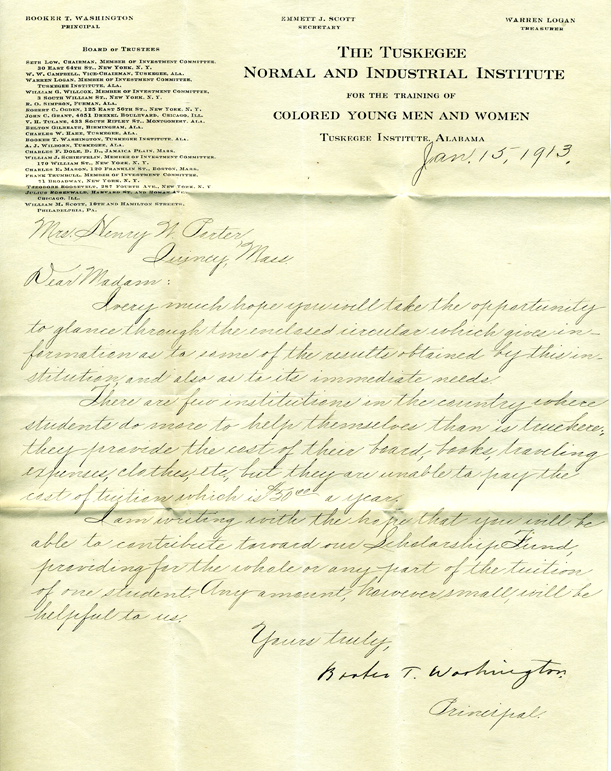 BOOKER T. WASHINGTON
PRINCIPAL
EMMETT J. SCOTT
SECRETARY
WARREN LOGAN
TREASURER
BOARD OF TRUSTEES
SETH LOW, CHAIRMAN, MEMBER OF INVESTMENT COMMITTEE,
30 EAST 64TH ST., NEW YORK, N. Y.
W. W. CAMPBELL, VICE-CHAIRMAN, TUSKEGEE, ALA.
WARREN LOGAN, MEMBER OF INVESTMENT COMMITTEE,
TUSKEGEE INSTITUTE, ALA.
WILLIAM G. WILLCOX, MEMBER OF INVESTMENT COMMITTEE,
3 SOUTH WILLIAM ST., NEW YORK, N. Y.
R. O. SIMPSON, FURMAN, ALA.
ROBERT C. OGDEN, 125 EAST 56TH ST., NEW YORK, N. Y.
JOHN C. GRANT, 4651 DREXEL BOULEVARD, CHICAGO, ILL.
V. H. TULANE, 433 SOUTH RIPLEY ST., MONTGOMERY, ALA.
BELTON GILREATH, BIRMINGHAM, ALA.
CHARLES W. HARE, TUSKEGEE, ALA.
BOOKER T. WASHINGTON, TUSKEGEE INSTITUTE, ALA.
A. J. WILBORN, TUSKEGEE, ALA.
CHARLES F. DOLE, D. D., JAMAICA PLAIN, MASS.
WILLIAM J. SCHIEFFELIN, MEMBER OF INVESTMENT COMMITTEE,
170 WILLIAM ST., NEW YORK, N. Y.
CHARLES E. MASON, 120 FRANKLIN ST., BOSTON, MASS.
FRANK TRUMBULL, MEMBER OF INVESTMENT COMMITTEE,
71 BROADWAY, NEW YORK, N. Y.
THEODORE ROOSEVELT, 287 FOURTH AVE., NEW YORK, N. Y
JULIUS ROSENWALD, HARVARD ST. AND HOMAN AVE.,
CHICAGO, ILL.
WILLIAM M. SCOTT, 10TH AND HAMILTON STREETS,
PHILADELPHIA, PA.
THE TUSKEGEE
NORMAL AND INDUSTRIAL INSTITUTE
FOR THE TRAINING OF
COLORED YOUNG MEN AND WOMEN
TUSKEGEE INSTITUTE, ALABAMA
Jan. 15, 1913.
Mrs. Henry W. Porter,
Quincy, Mass.
Dear Madam:
I very much hope you will take the opportunity
to glance through the enclosed circular which gives in-
formation as to some of the results obtained by this in-
stitution, and also as to its immediate needs.
There are few instituitions in the country where
students do more to help themselves than is true here;
they provide the cost of their board, books, traveling
expenses, clothes, etc, but they are unable to pay the
cost of tuition which is $50 a year.
I am writing with the hope that you will be
able to contribute toward our Scholarship Fund,
providing for the whole or any part of the tuition
of one student. Any amount, however small will be
helpful to us.
Yours truly,
Booker T. Washington
Principal.